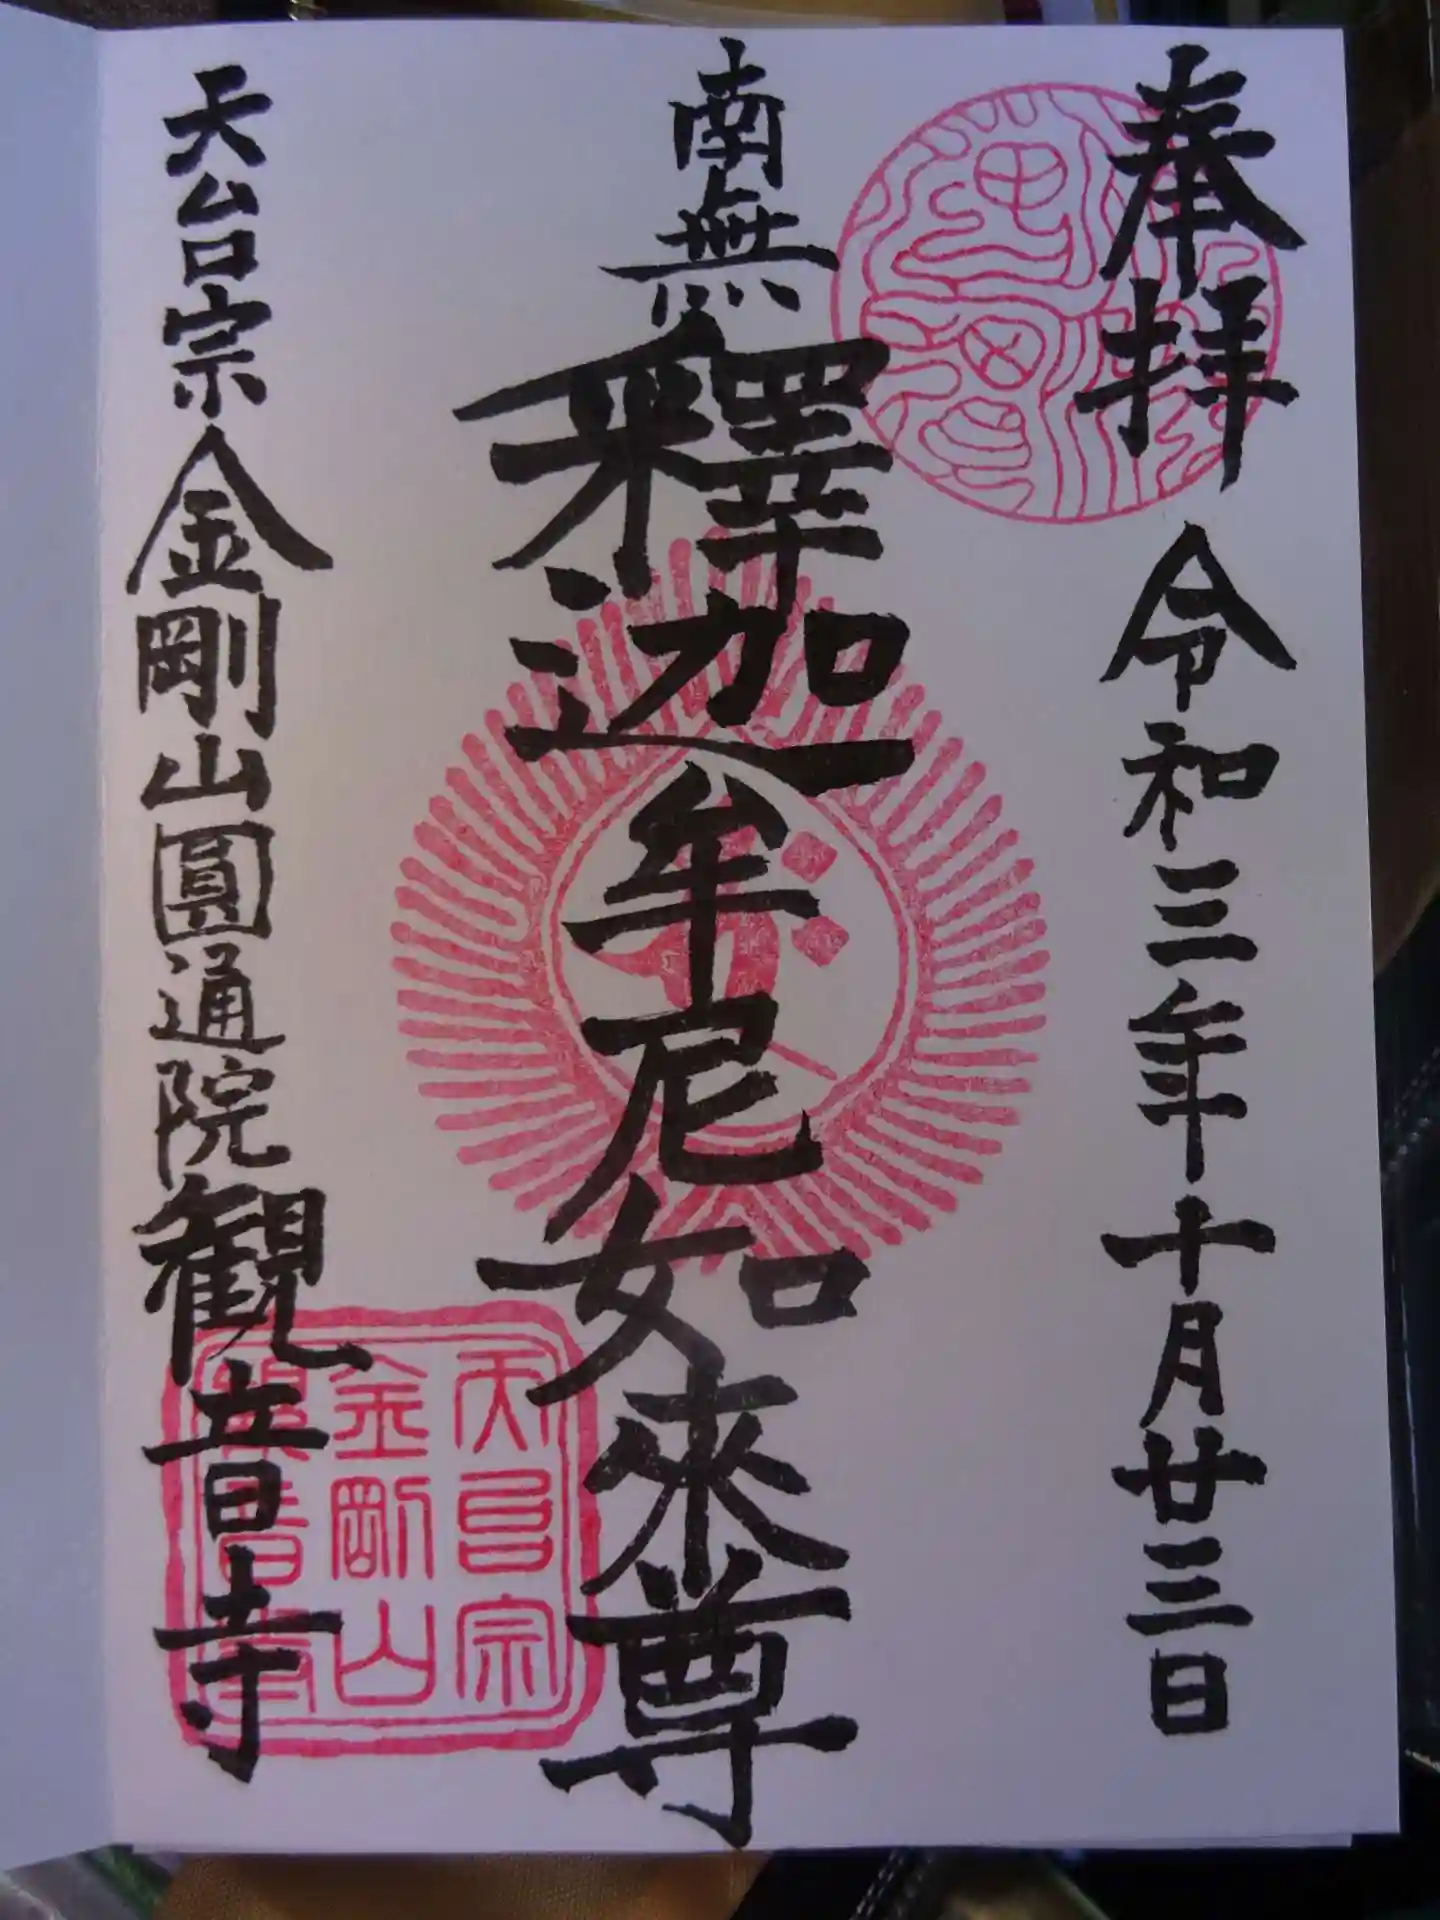 奉拝 令和三年十月廿三日
南無釋迦牟尼如來尊
天台宗金剛山圓通院観音寺
天台宗
金剛山
観音寺